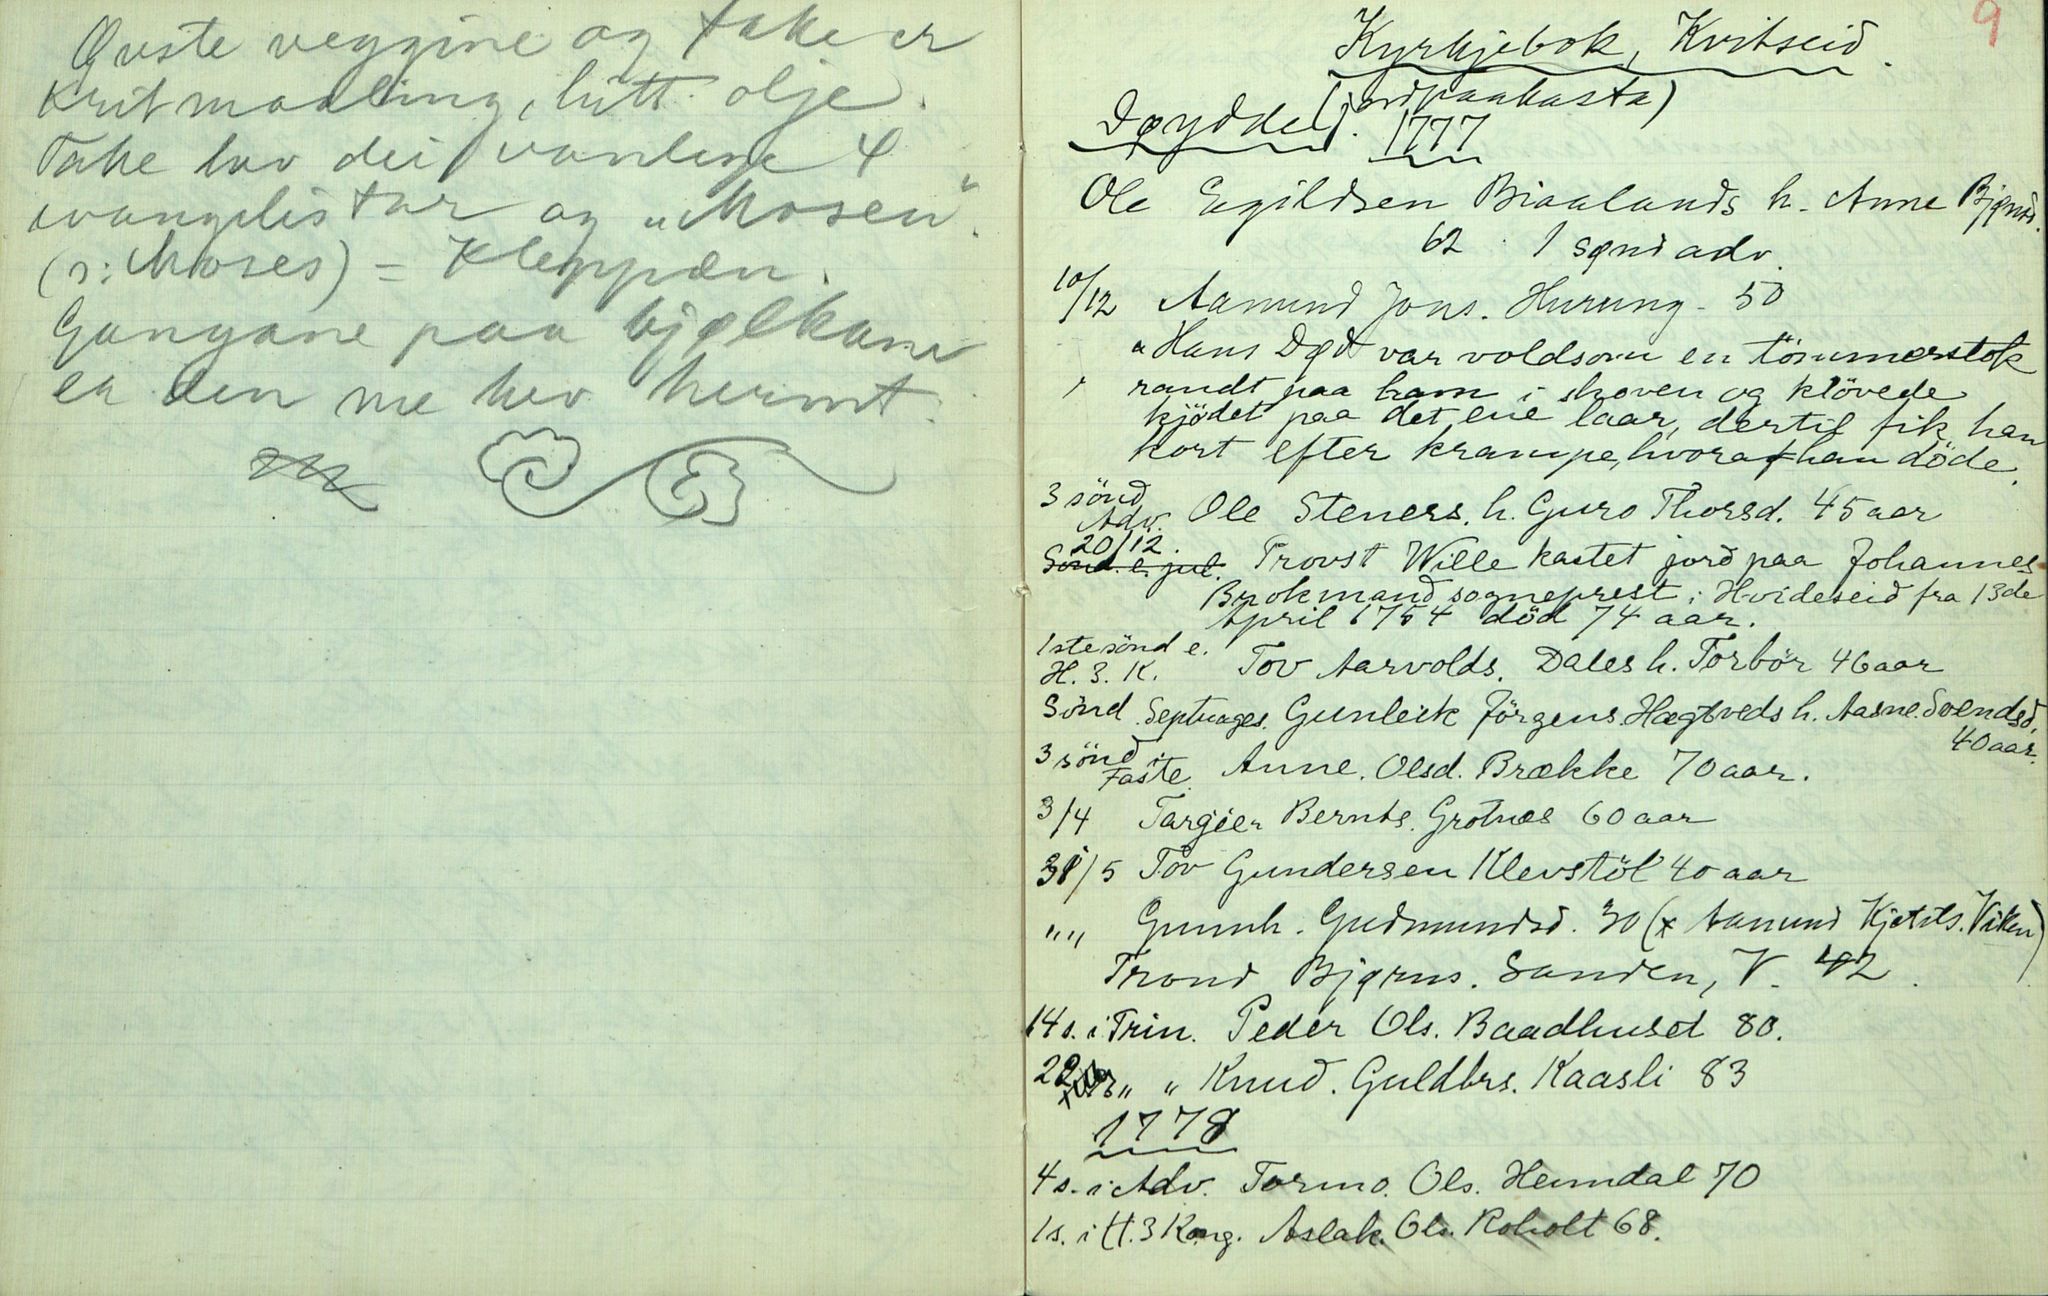 Øvste veggine og take er
Kritmaaling, litt olje.
Take hev dei vanlege 4
evangelistar og „Mosen".
(ɔ: Moses) = Kleppen.
Gangane paa bjelkane
er den me hev hermt.
9
Kyrkjebok, Kvitseid.
(jordpaakasta)
Døydde. 1777
Ole Egildsen Biaalands h. Anne Bjørnsd.
62. 1 sønd adv.
10/12 Aamund Jons. Hurung - 50
„Hans Død var voldsom en tömmerstok
randt paa ham i skoven og klövede
kjödet paa det ene laar, dertil fik han
kort efter krampe, hvoraf han döde.
3 sönd
Adv. Ole Steners. h. Guro Thorsd. 45 aar
20/12.
Sönd. e. jul. Provst Wille kastet jord paa Johannes
Brokmand sogneprest i Hvideseid fra 13de
April 1754 död 74 aar.
1ste sönd e.
H. 3. K. Tov Aarvolds. Dales h. Torbör 46 aar
Sönd. Septuages. Gunleik Jörgens. Hægtveds h. Aasne. Svendsd.
40 aar.
3 sönd i
Faste Anne. Olsd. Brække 70 aar.
3/4 Targier Bernts. Grotnæs 60 aar
31/5 Tov Gundersen Klevstöl 40 aar
„„ Gunnh. Gudmundsd. 30 (x Aamund Kjetils. Viken)
Trond Bjørns. Sanden, V. 42.
14 s. i Trin. Peder Ols. Baadhuset 80.
22 „ „ Knud. Guldbrs. Kaasli 83
1778
4 s. i Adv. Tormo. Ols. Hemdal 70
1 s. i H. 3 Kong. Aslak. Ols. Roholt 68.